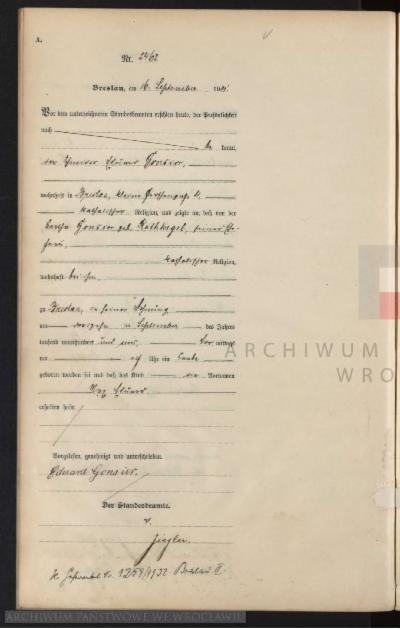 A.
Nr. 2462
Breslau, am 16. September 190
Vor dem unterzeichneten Standesbeamten erschien heute, der Persönlichkeit
nach
be kannt,
der Eduard Gonsior,
wohnhaft in Breslau, kleine
katholischer Religion, und zeigte an, daß von der
Bertha Gonsior geb. Rathkegel, seiner Ehe-
frau,
katholischer Religion,
wohnhaft bei ihm,
zu Breslau, in seiner Wohnung
am dreizehn ten September des Jahres
tausend neunhundert und eins, Vor mittags
um Uhr ein Knabe
geboren worden sei und daß das Kind die Vornamen
Max Eduard
erhalten habe.
Vorgelesen, genehmigt und unterschrieben.
Eduard Gonsior.
Der Standesbeamte.
Ziegler.
1259/1932 Breslau II.
ARCHIWUM
WRO
ARCHIWUM PAŃSTWOWE WE WROCŁAWIU